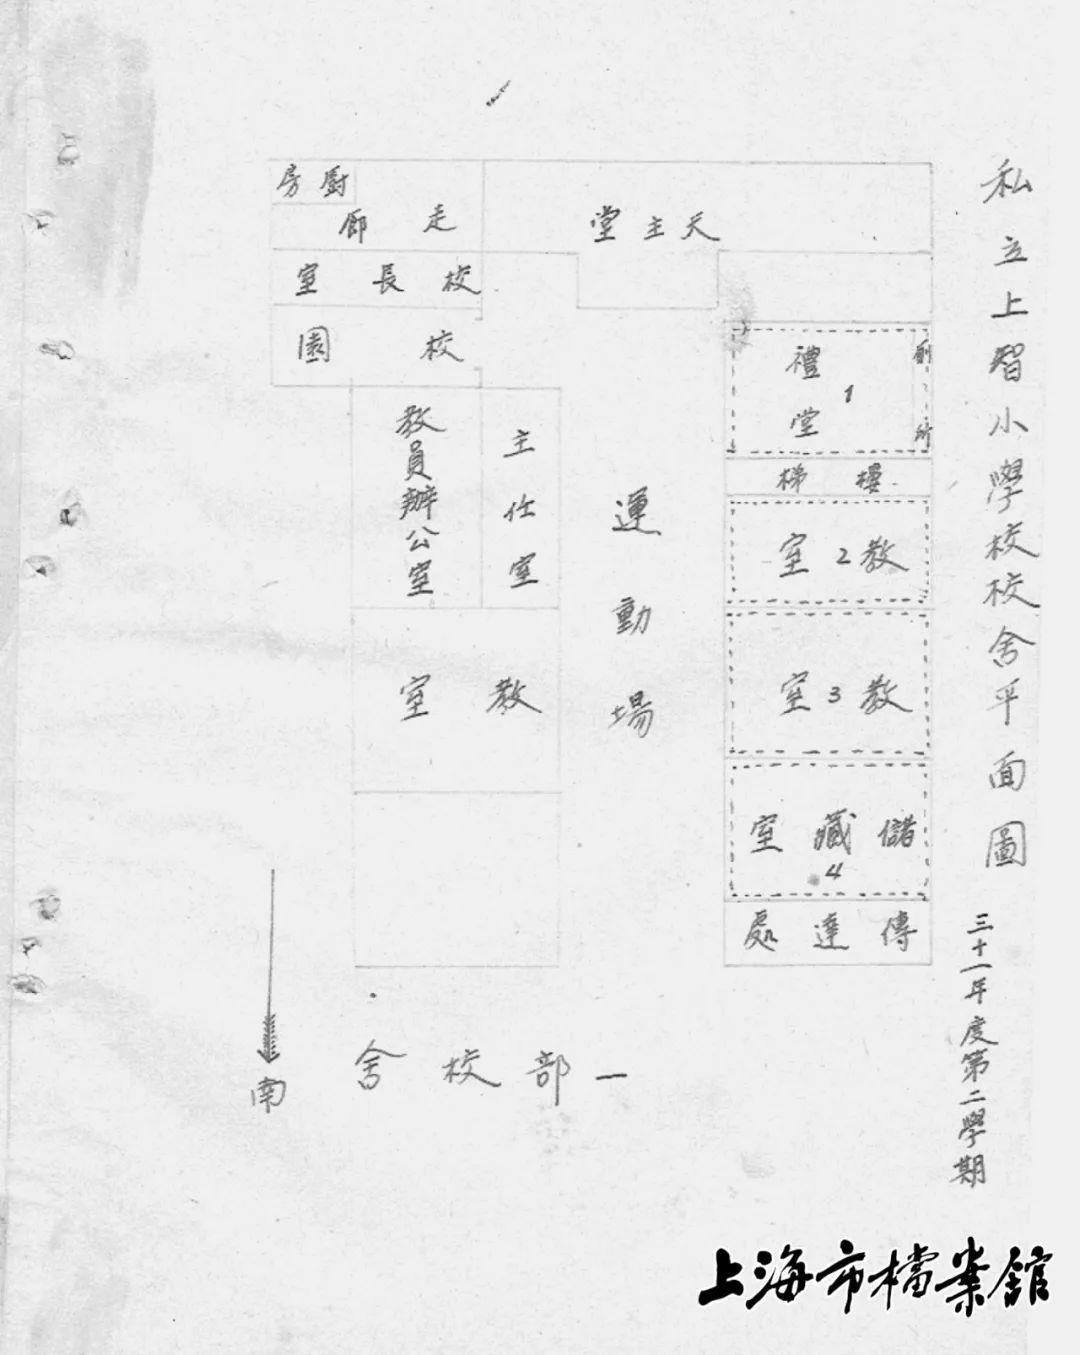 私立上智小學校校舍平面圖
三十一年度第二學期
廚房
走廊
天主堂
校長室
校園
禮堂
1
廁所
教員辦公室
主任室
運動場
樓梯
教2室
教室
教3室
儲藏室
4
傳達處
一部校舍
南
上海市檔案館